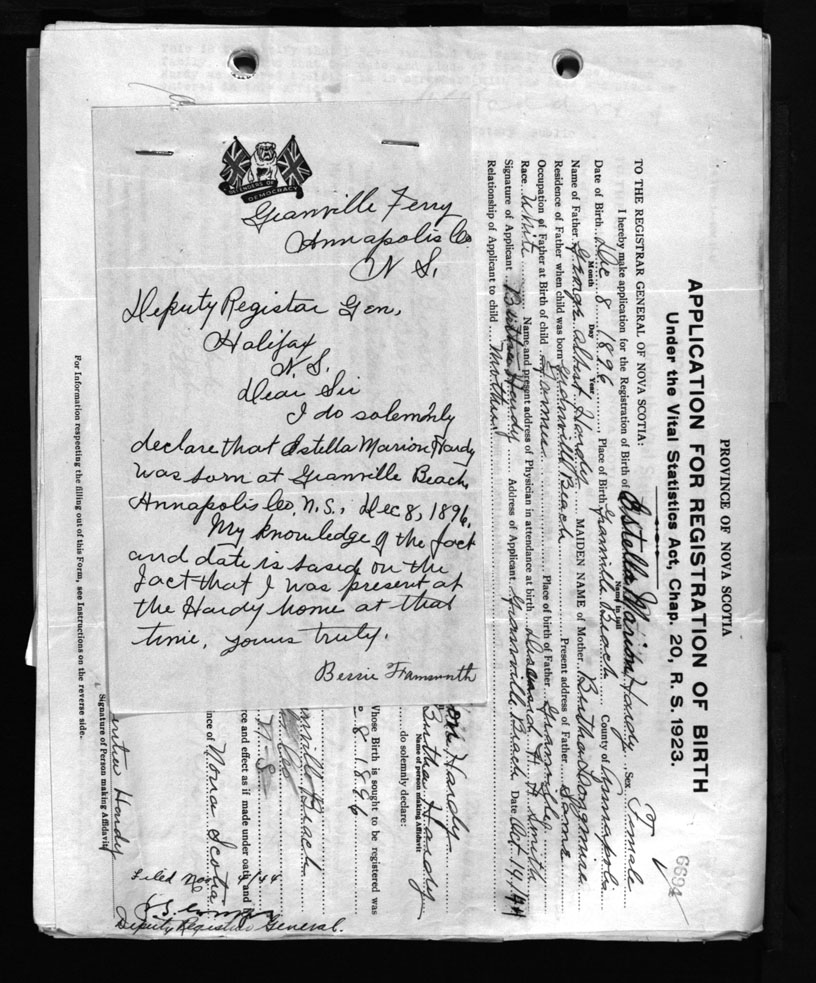 DEFENDERS OF
DEMOCRACY
Granville Ferry
Annapolis Co.
N S.
Deputy Registar Gen,
Halifax
N. S.
Dear Sir
I do solemnly
declare that Estella Marion Hardy
was born at Granville Beach,
Annapolis Co, N.S., Dec 8, 1896.
My knowledge of the fact
and date is based on the
fact that I was present at
the Hardy home at that
time, yours truly.
Bessie
PROVINCE OF NOVA SCOTIA
APPLICATION FOR REGISTRATION OF BIRTH
Under the Vital Statistics Act, Chap. 20, R. S. 1923.
6694
TO THE REGISTRAR GENERAL OF NOVA SCOTIA:
I hereby make application for the Registration of Birth of Estella Marion Hardy Sex Female
Name in full
Date of Birth Dec 8 1896 Place of Birth Granville Beach County of Annapolis
Month Day Year
Name of Father George Albert Hardy MAIDEN NAME of Mother Bertha
Residence of Father when child was born Granville Beach Present address of Father Same
Occupation of Father at Birth of child Farmer Place of birth of Father Granville
Race White Name and present address of Physician in attendance at birth Deceased Smith
Signature of Applicant Bertha Hardy Address of Applicant Granville Beach Date Oct 14, 44
Relationship of Applicant to child Mother
Hardy
Bertha Hardy
Name of person making Affidavit
do solemnly declare:
Whose Birth is sought to be registered was
8 1896
Beach
Co
N. S.
rce and effect as if made under oath and
ince of Nova Scotia
Hardy
Signature of Person making Affidavit
Filed Nov 44
Deputy Registrar General.
For Information respecting the filling out of this Form, see Instructions on the reverse side.